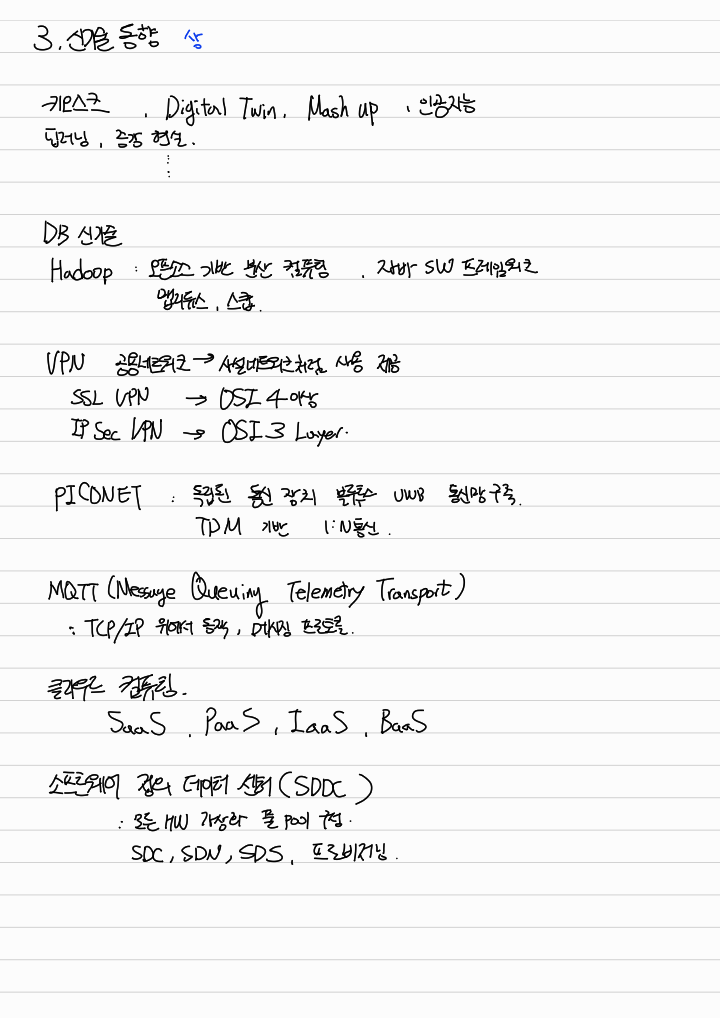 3. 신기술 동향 상
키오스크, Digital Twin, Mash up, 인공지능
딥러닝, 증강 현실.
DB 신기술
Hadoop : 오픈소스 기반 분산 컴퓨팅, 자바 SW 프레임워크
맵리듀스, 스쿱.
VPN 공용네트워크 → 사설네트워크처럼 사용 제공
SSL VPN → OSI 4 이상
IP Sec VPN → OSI 3 Layer.
PICONET : 독립된 통신 장치 블루투스 UWB 통신망 구축.
TDM 기반 1:N 통신.
MQTT (Message Queuing Telemetry Transport)
: TCP/IP 위에서 동작, 메시징 프로토콜.
클라우드 컴퓨팅.
SaaS, PaaS, IaaS, BaaS
소프트웨어 정의 데이터 센터 (SDDC)
: 모든 HW 가상화 풀 pool 구성.
SDC, SDN, SDS, 프로비저닝.